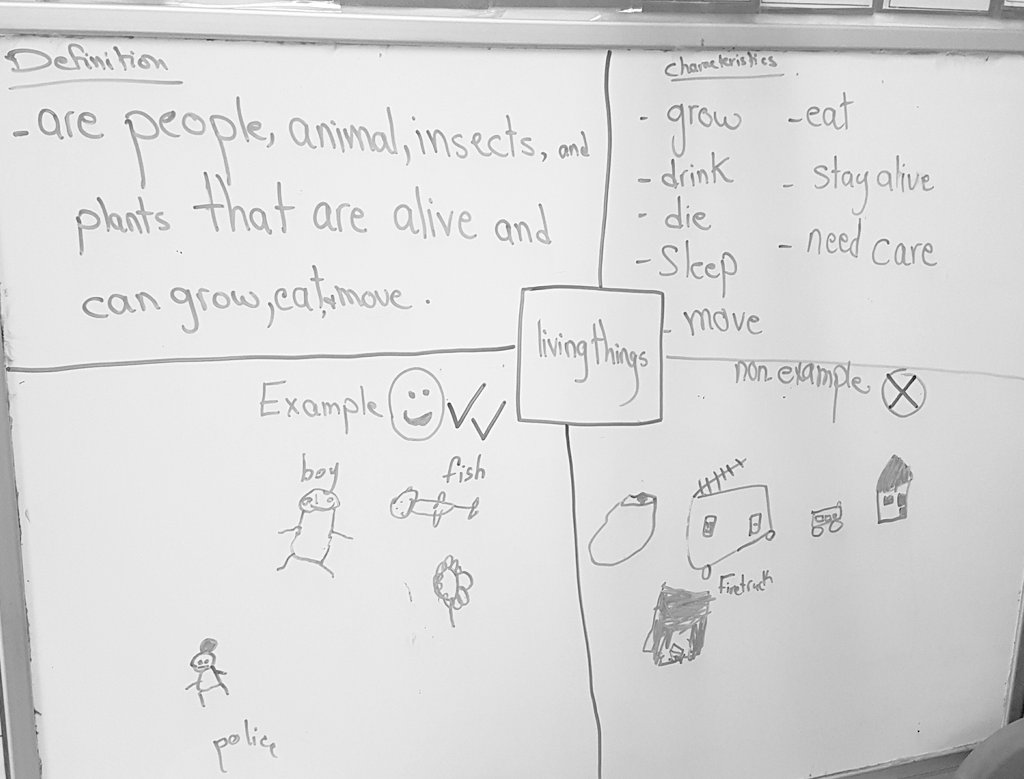 Definition
- are people, animal, insects, and
plants that are alive and
can grow, eat, & move.
Characteristics
- grow
- drink
- die
- Sleep
- move
- eat
- stay alive
- need care
living things
Example
boy
fish
police
non example
Firetruck